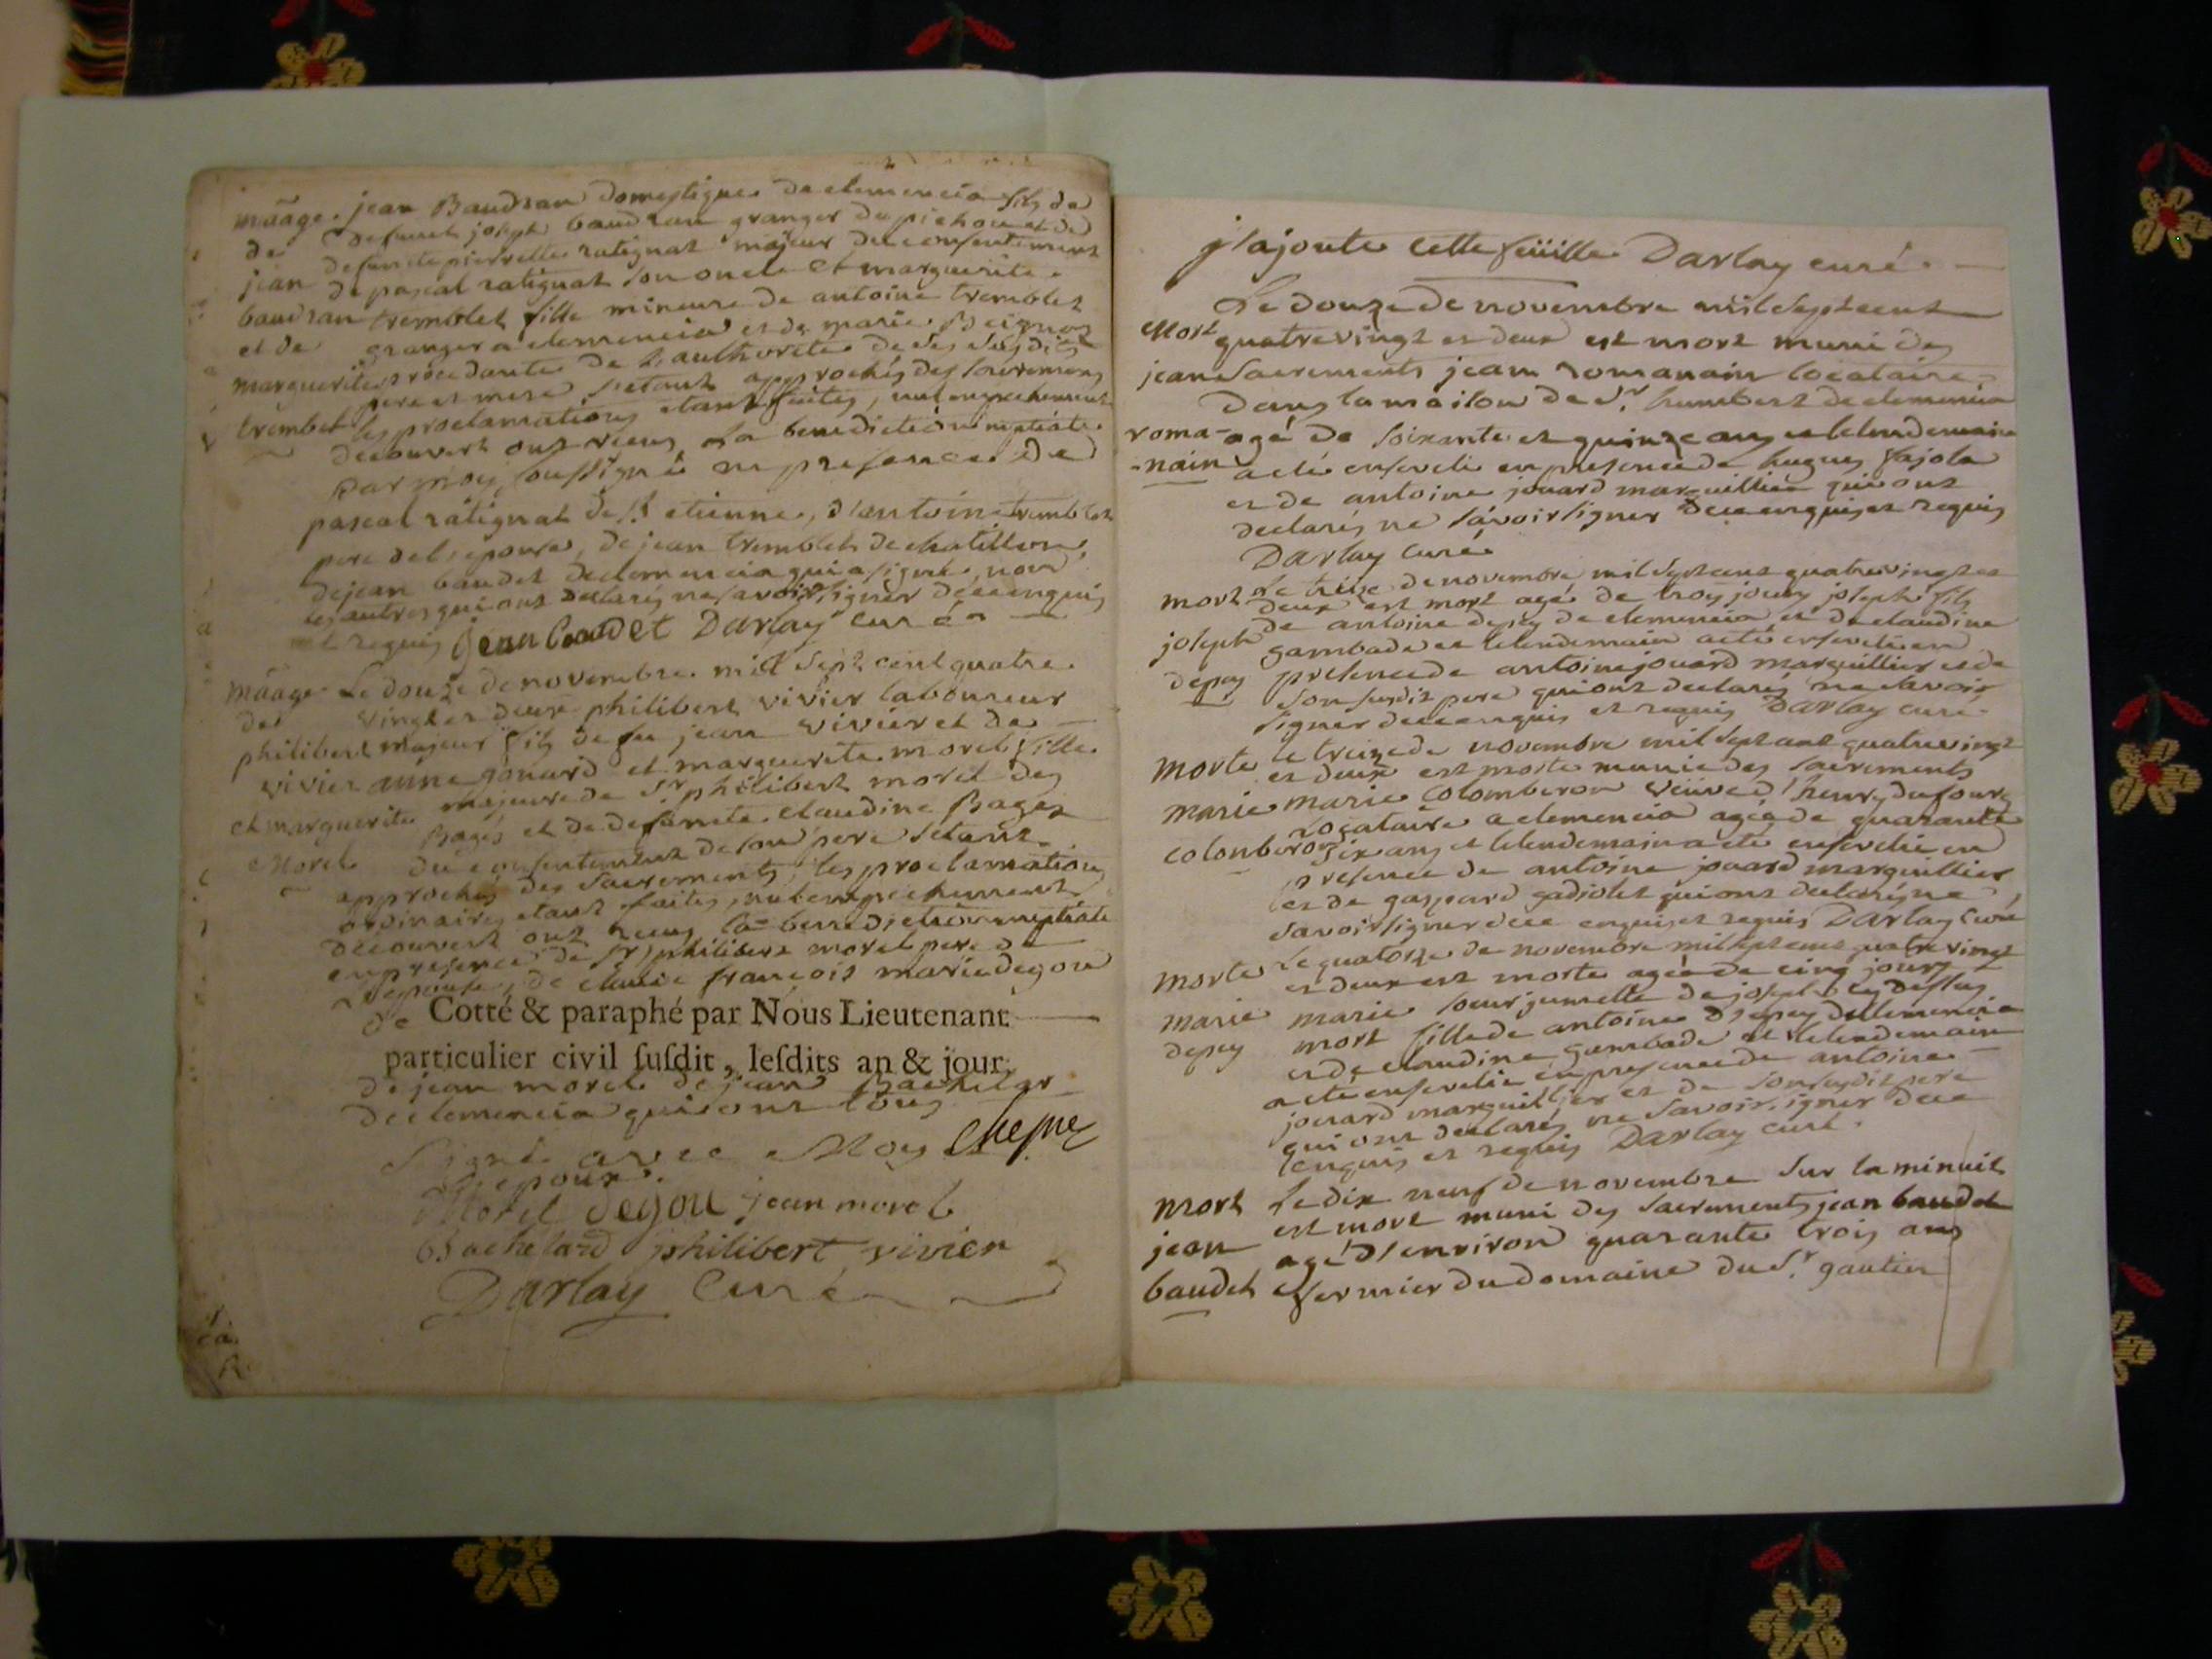 mãage. jean Baudran domestique de clemencia fils de
de defunct joseph baudran granger du pichou et de
jean defuncte pierrette ratignat majeur du consentement
de pascal ratignat son oncle et marguerite
baudran tremblet fille mineure de antoine tremblet
et de granger a clemencia et de marie
marguerite procedante de l'authorité de ses susdits
pere et mere s'etant approchés des sacremens
trembet les proclamations etant faites, nul empechement
decouvert ont reçus la benediction nuptiale
par moy soussigné en presence de
pascal ratignat de st etienne, d'antoine tremblet
pere de l'epouse, de jean tremblet de chatillon,
de jean baudet de clemencia qui a signé, non
les autres qui ont declarés ne savoir signer de ce enquis
et requis jean baudet Darlay curé
mãage Le douze de novembre mil sept cent quatre
de vingt et deux philibert vivier laboureur
philibert majeur fils de feu jean vivier et de
vivier anne gonard et marguerite morel fille
et marguerite majeure de Sr philibert morel des
Bages et de defuncte claudine Bages
Morel du consentement de son pere s'etant
approchés des sacrements, les proclamations
ordinaires etant faites, nul empechement
decouvert ont reçus la benediction nuptiale
en presence de Sr philibert morel pere de
l'epouse, de claude françois marie degou
de Cotté & paraphé par Nous Lieutenant
particulier civil ſuſdit, leſdits an & jour.
de jean morel de jean Bachelar
de clemencia qui ont tous
Signé avec Moy
l'epoux.
Morel degou jean morel
Bachelard philibert vivier
Darlay Curé
j'ajoute cette feüille Darlay curé.
Le douze de novembre mil sept cent
Mort quatre vingt et deux est mort muni des
jean Sacrements jean romanain locataire
dans la maison de Sr. humbert de clemencia
roma- agé de soixante et quinze ans et le lendemain
-nain a eté enseveli en presence de hugues fajola
et de antoine jouard marguillier qui ont
declarés ne sávoir signer de ce enquis et requis
Darlay curé
mort Le treize de novembre mil sept cent quatre vingt et
deux est mort agé de trois jours joseph fils
joseph de antoine depey de clemencia et de claudine
gambade et le lendemain a eté enseveli en
depey presence de antoine jouard marguillier et de
son susdit pere qui ont declarés ne savoir
signer de ce enquis et requis Darlay curé
morte le treize de novembre mil sept cent quatre vingt
et deux est morte munie des sacrements
marie marie Colomberon veuve d'henry dufour
Locataire a clemencia agée de quarante
colonberon six ans et le lendemain a eté ensevelie en
presence de antoine jouard marguillier
et de gaspard gadiolet qui ont declarés ne
savoir signer de ce enquis et requis Darlay curé
morte Le quatorze de novembre mil sept cent quatre vingt
et deux est morte agée de cinq jours
marie marie soeur jumelle de joseph cy dessus
depey mort fille de antoine depey de clemencia
et de claudine gambade et le lendemain
a eté ensevelie en presence de antoine
jouard marguillier et de son susdit pere
qui ont declarés ne savoir signer de ce
enquis et requis Darlay curé.
mort Le dix neuf de novembre sur la minuit
est mort muni des sacrements jean baudet
jean agé d'environ quarante trois ans
baudet fermier du domaine du Sr. gautier